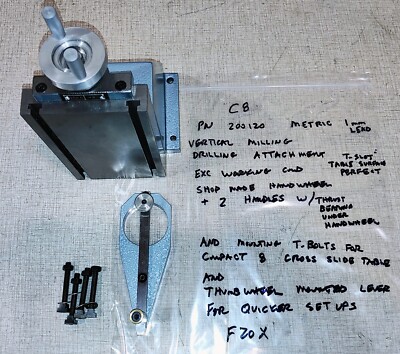 C8
PN 200120 METRIC 1mm LEAD
VERTICAL MILLING
DRILLING ATTACHMENT T-SLOT TABLE SURFACE PERFECT
EXC WORKING CND
SHOP MADE HANDWHEEL
+ 2 HANDLES W/ THRUST BEARING UNDER HANDWHEEL
AND MOUNTING T-BOLTS FOR
COMPACT 8 CROSS SLIDE TABLE
AND
THUMBWHEEL MOUNTED LEVER
FOR QUICKER SET UPS
F20X